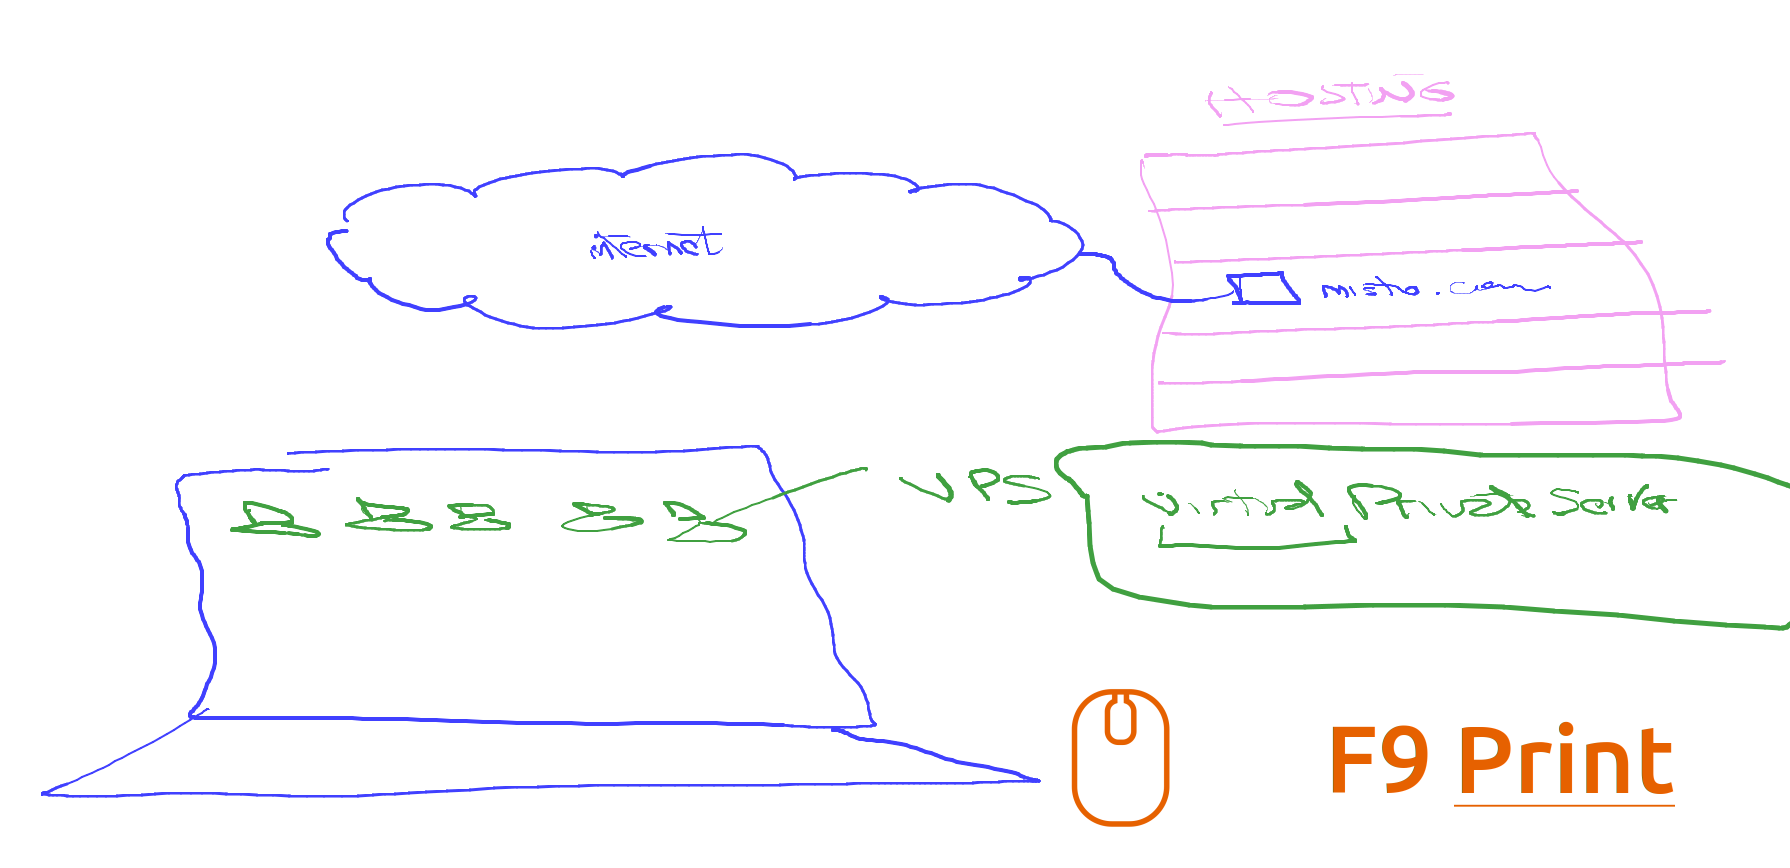 HOSTING
internet
misho.com
VPS
Virtual Private Server
F9 Print